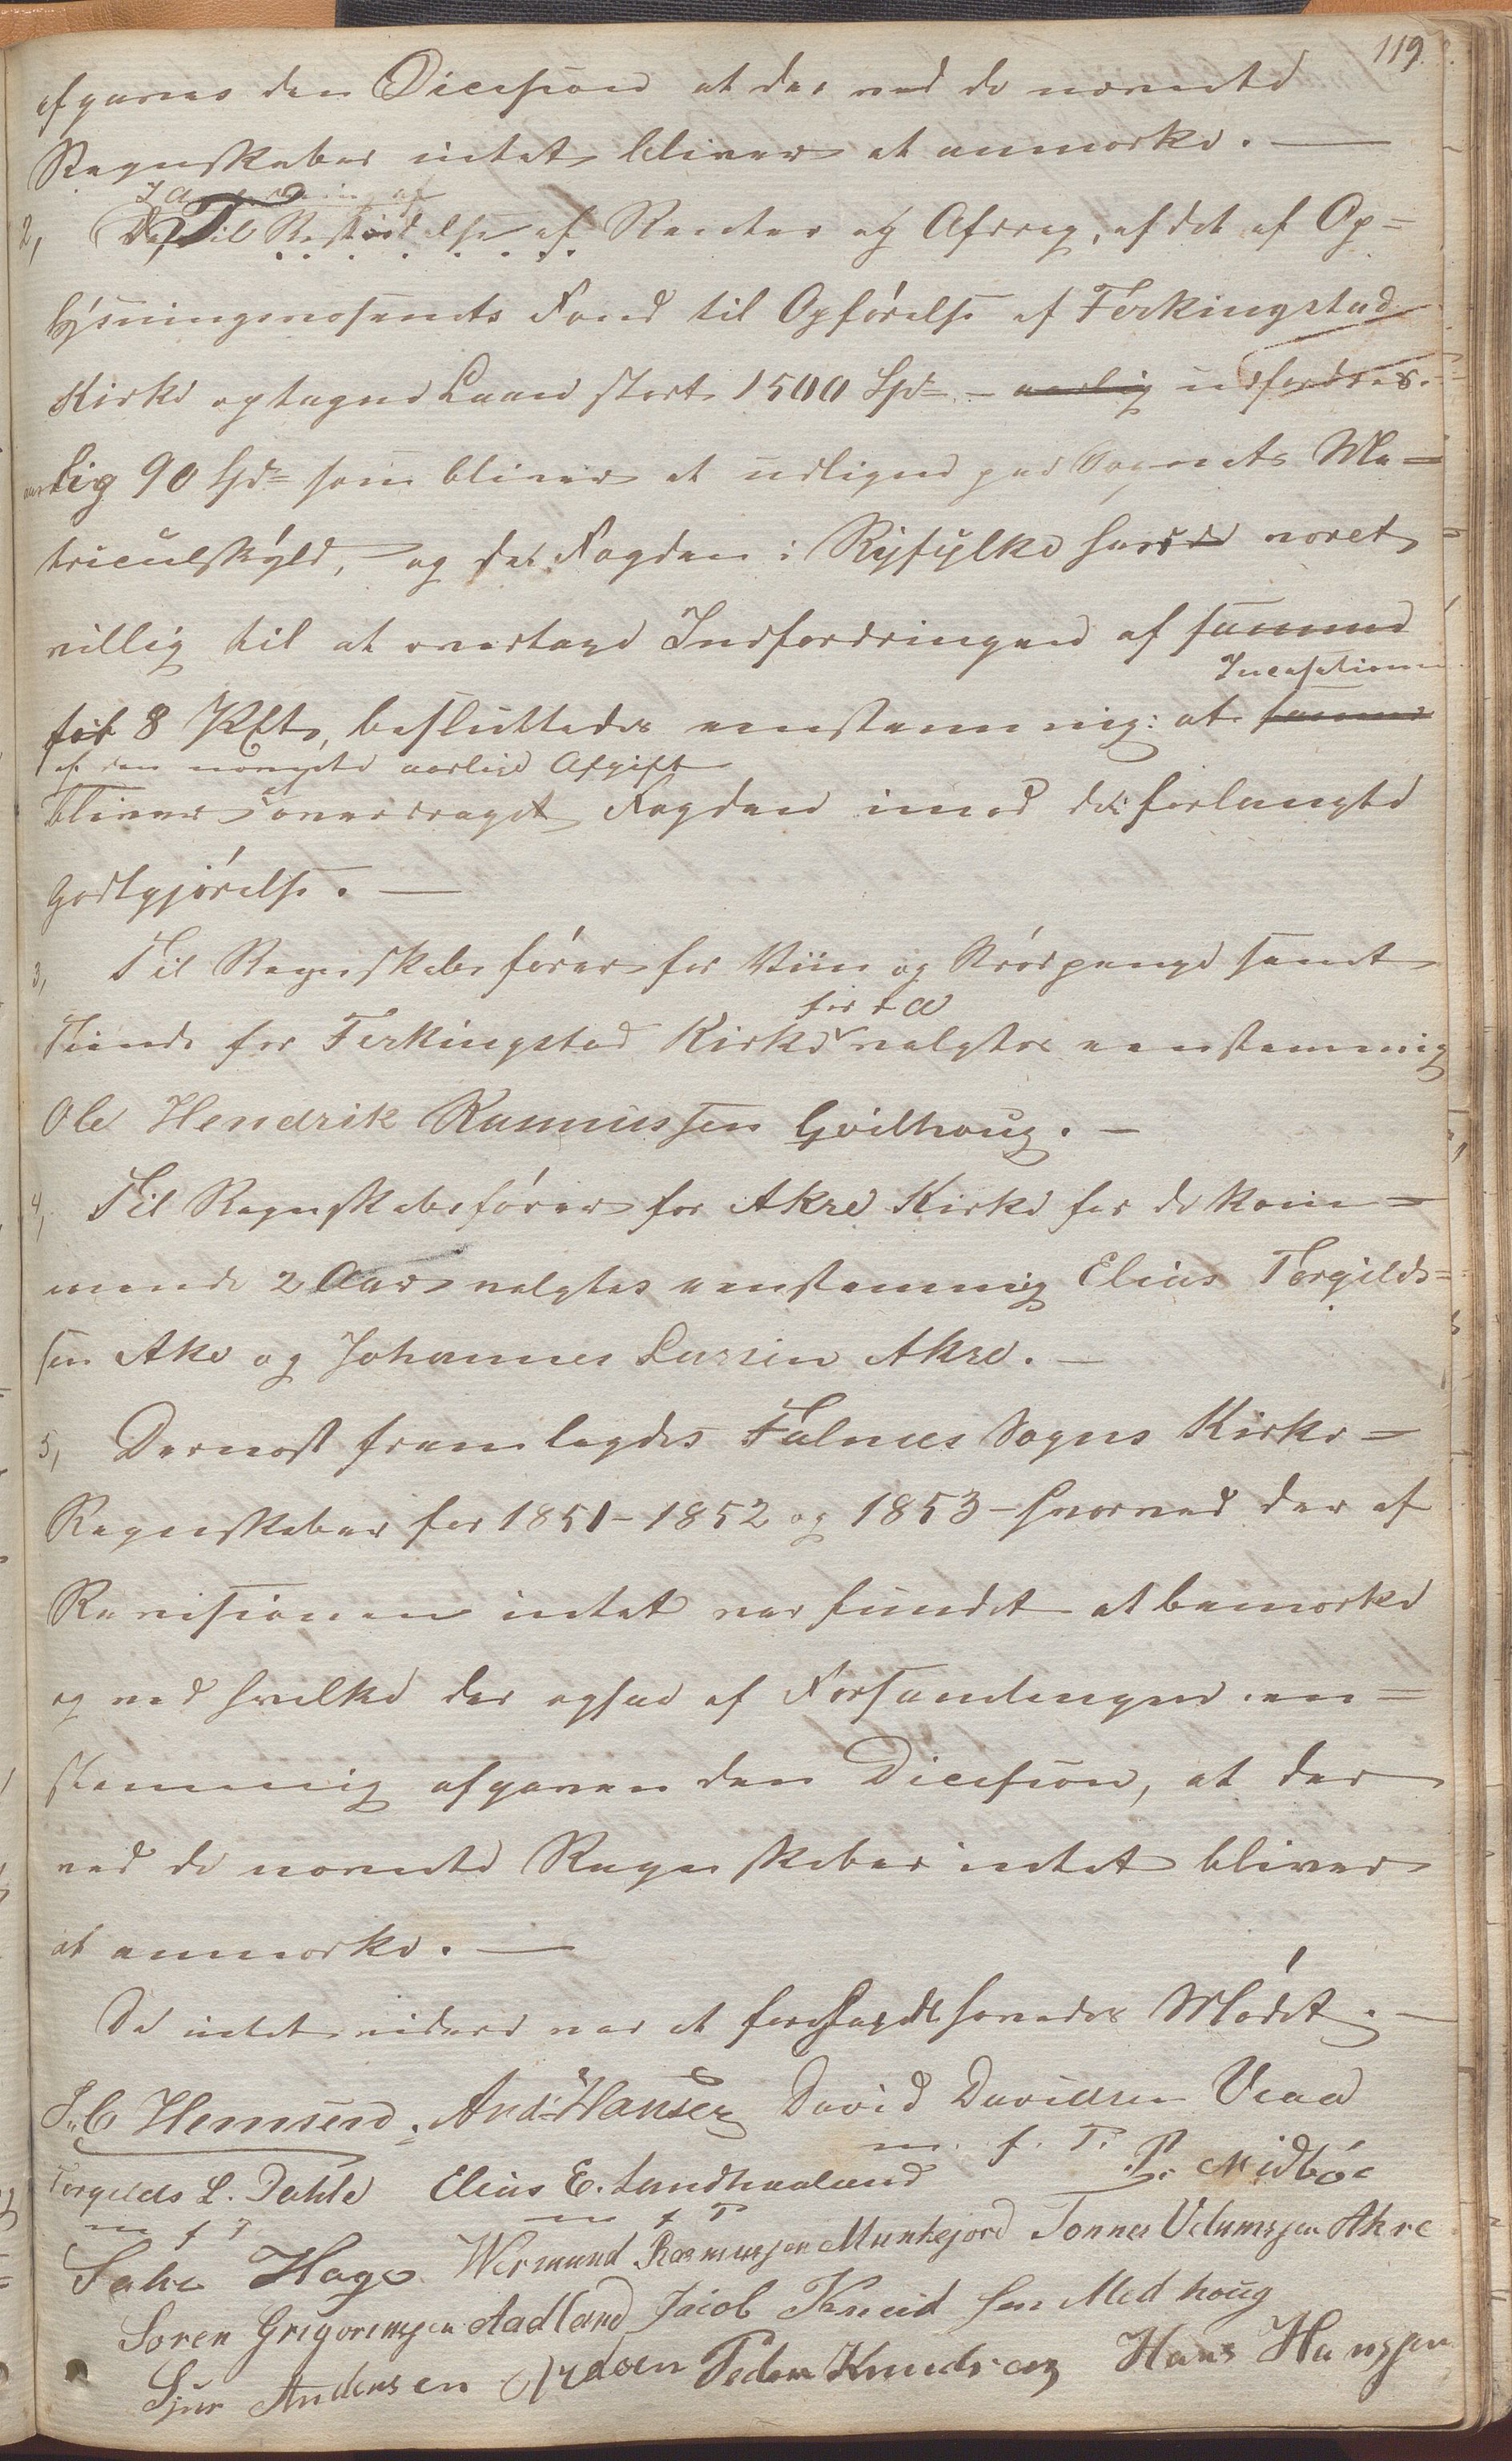 119.
afgaves den Dicision at der ved de nævnte
Regnskaber intet bliver at anmærke. —
2, Til Bestridelse af Renter og Afdrag, af det af Op=
lysningsvæsenets Fond til Opførelse af Ferkingstad
Kirke optagne Laan stort 1500 Spd – aarlig udfordres
aarlig 90 Spd som bliver at udligne paa Sognets Ma=
triculskyld, og da Fogden i Ryfylke havde været
villig til at overtage Indfordringen af samme
Incasationen
for 8 PCt, besluttedes eenstemmig: at samme
af den nævnte aarlige Afgift
bliver overdraget Fogden imod den forlangte
Godtgjørelse. —
3, Til Regnskabsfører for Viin og Brødpenge samt
for 2 Aar
Tiende for Ferkingstad Kirke valgtes eenstemmig
Ole Hendrik Rasmussen Goilhoug. —
4, Til Regnskabsfører for Akre Kirke for de kom=
mende 2 Aar valgtes eenstemmig Elias Torgilds=
sen Ake og Johannes Larsen Akre. —
5, Dernæst fremlagdes Falnæs Sogns Kirke=
Regnskaber for 1851 – 1852 og 1853 – hvorved der af
Revisionen intet var fundet at bemærke
og ved hvilke der ogsaa af Forsamlingen een=
stemmig afgaves den Dicision, at der
ved de nævnte Regnskaber intet bliver
at anmærke. —
Da intet videre var at foretage hævedes Mødet. —
S. C Hemsen. And: Hansen David Davidsen Vaad
m. f. P.
Torgilds L. Dahle Elias E. Sandhaaland P. Midbøe
m f P m f P
Sake Hago Wermund Rasmussen Munkejord Tonnes Velumssen Akre
Soren Grigoriussen Aadland Jacob Knudsen Medhoug
Sjur Andersen Peder Knudsen Hans Hanssen